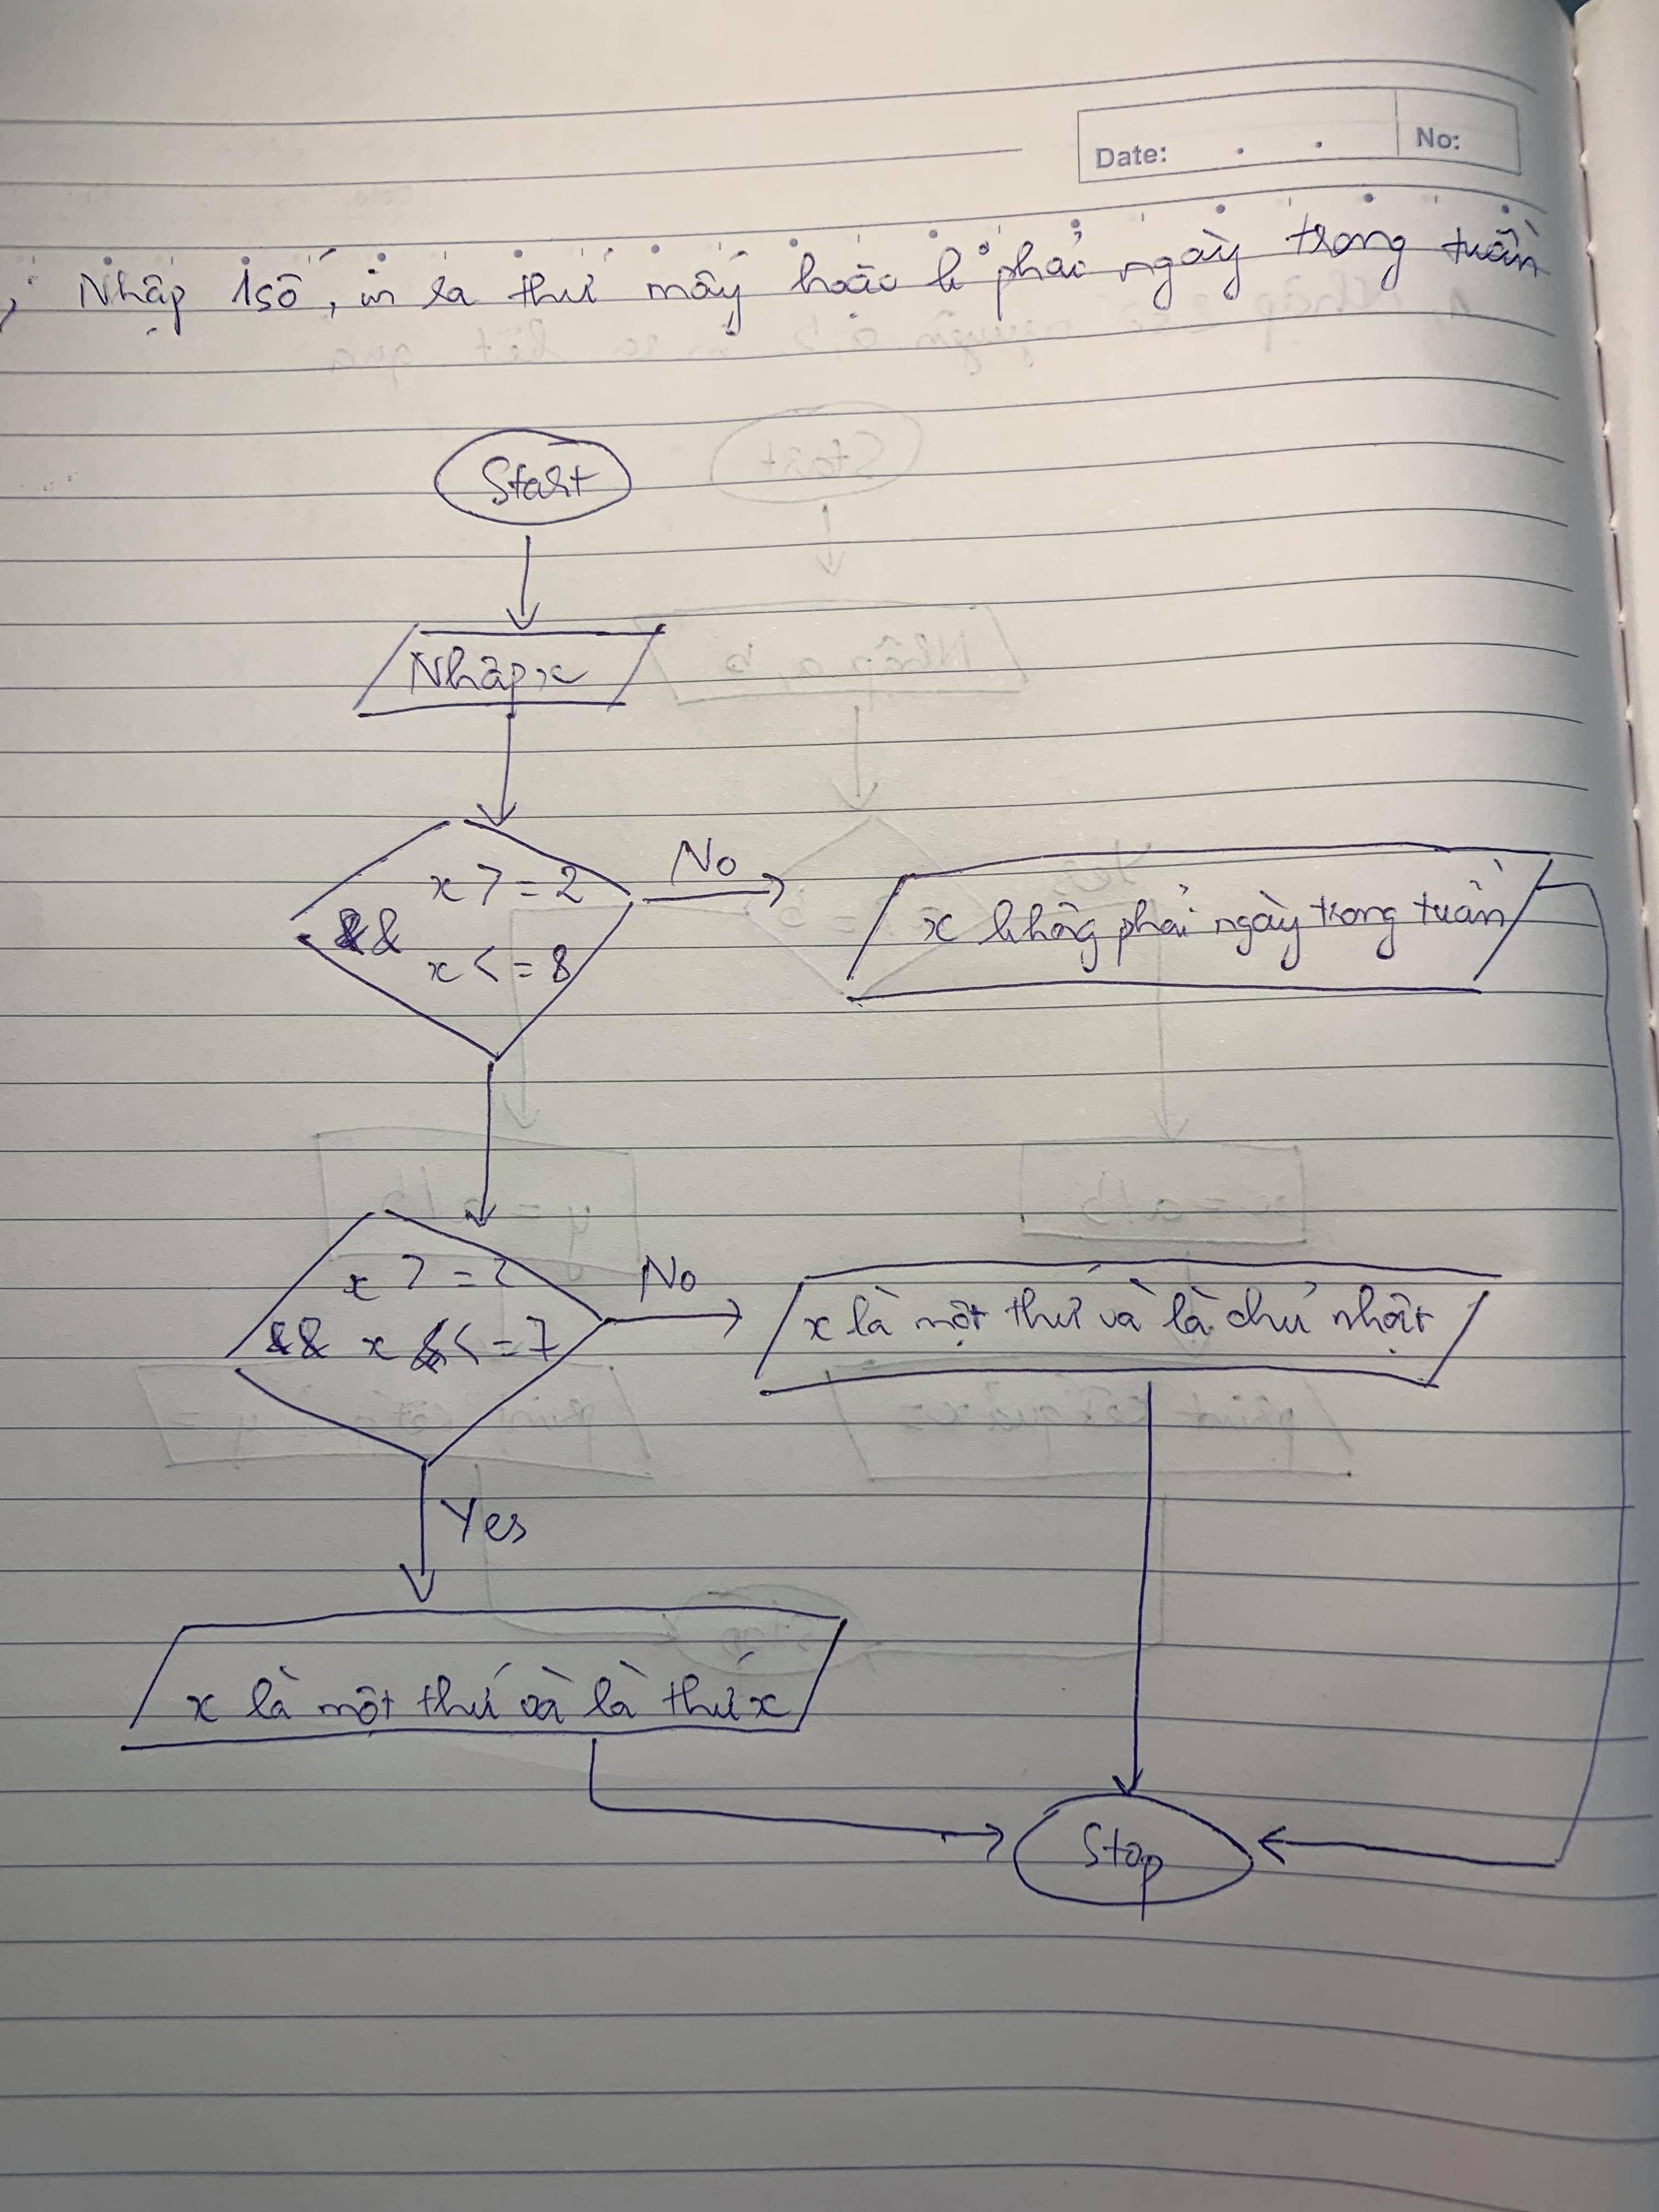 Date: . . No:
Nhập 1 số, in ra thứ mấy hoặc k phải ngày trong tuần
Start
Nhập x
x > = 2
&&
x < = 8
No
x không phải ngày trong tuần
x > = 2
&& x < = 7
No
x là một thứ và là chủ nhật
Yes
x là một thứ và là thứ x
Stop